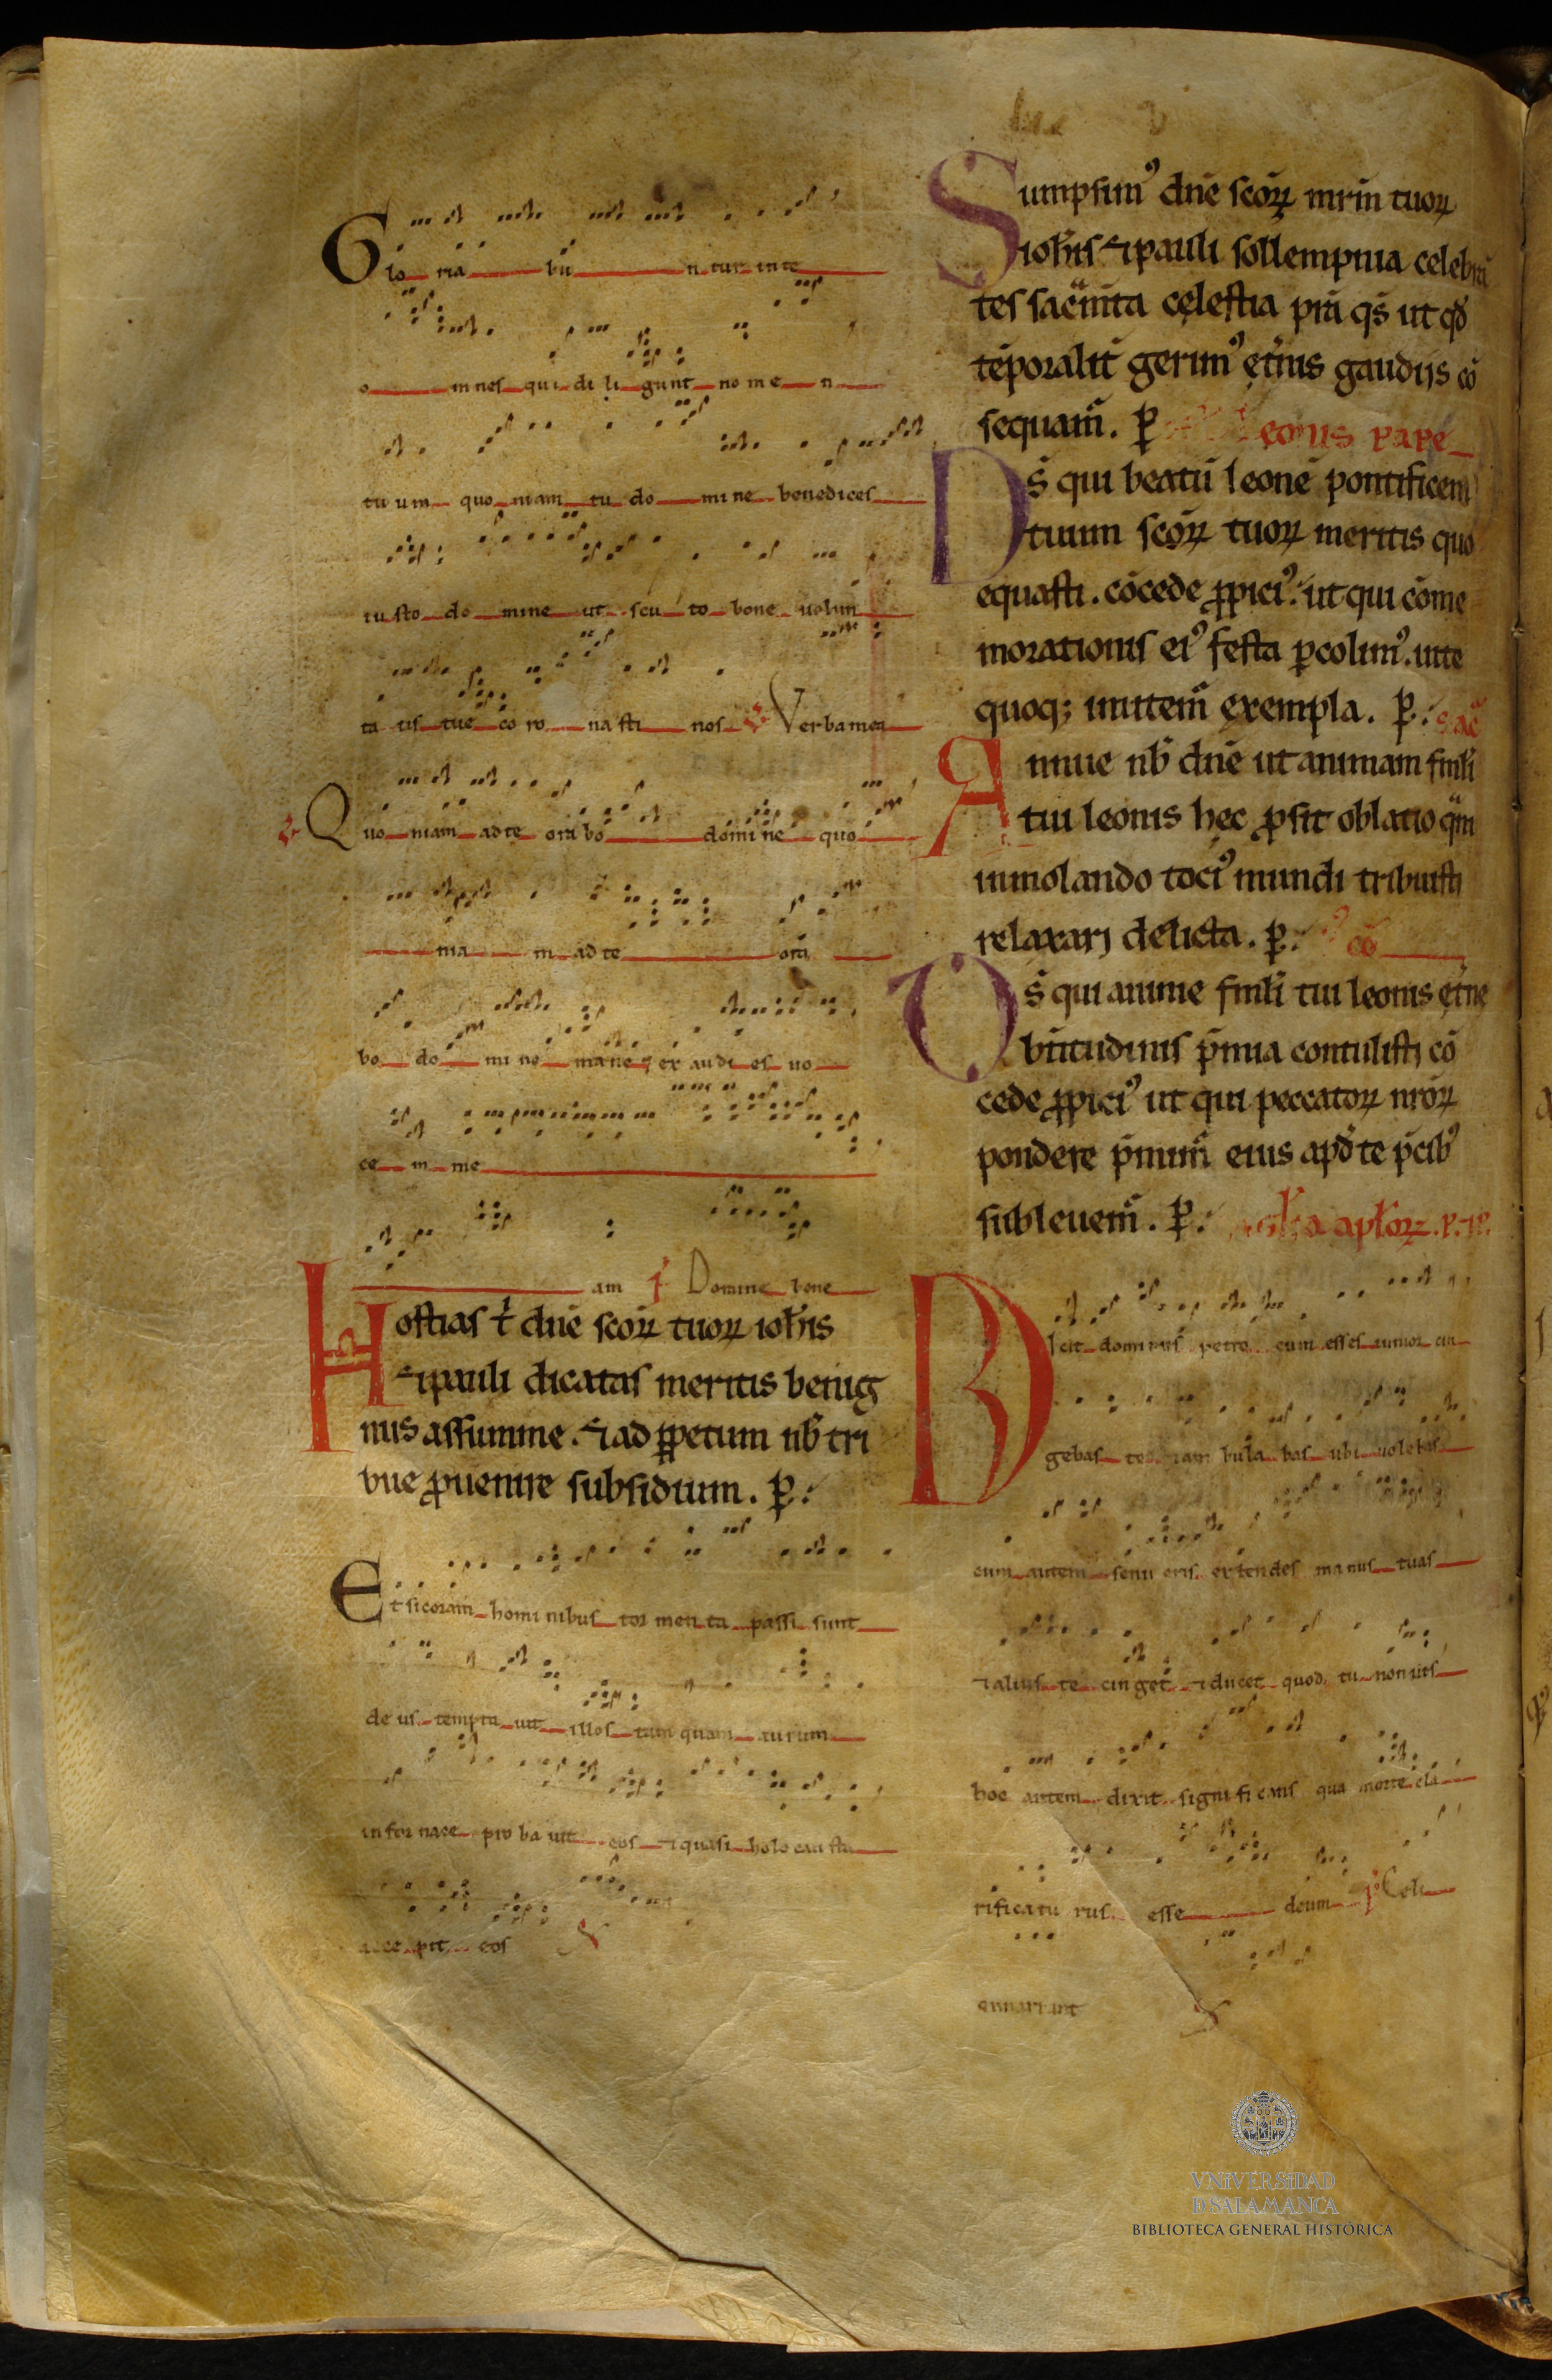 Glo ria bu n tur in te
o mnes qui di li gunt no me n
tu um quo niam tu do mi ne benedices
iu sto do mine ut scu to bone uolun
ta tis tue co ro na sti nos Verba mea
Quo niam ad te ora bo domi ne quo
nia m ad te ora
bo do mi ne mane ⁊ ex audi es uo
ce m me
am Domine bone
Hostias t̄ dn̄e scōꝝ tuoꝝ ioh̄is
⁊ pauli dicatas meritis benig
nus assumme. ⁊ ad ꝑpetuum nb̄ tri
bue ꝓuenire subsidium. ꝑ.
Et si coram homi nibus tor men ta passi sunt
de us tempta uit illos tam quam aurum
in for nace pro ba uit eos ⁊ quasi holo cau sta
acce pit eos
Sumpsimꝰ dn̄e scōꝝ mr̄m tuoꝝ
ioh̄is ⁊ pauli sollempnia celebrā
tes sacm̄ta celestia p̄ra q̄s ut qd̄
tēporalit̄ gerimꝰ et̄nis gaudijs cō
sequam̄. ꝑ Leonis pape
Ds̄ qui beatū leonē pontificem
tuum scōꝝ tuoꝝ meritis quo
equasti. cōcede ꝓpiciꝰ. ut qui cōme
morationis eiꝰ festa ꝑcolimꝰ. uite
quoq; imitem̄ exempla. ꝑ. sac̄
Annue nb̄ dn̄e ut animam fml̄i
tui leonis hec ꝓsit oblatio q̄m
inmolando tociꝰ mundi tribuisti
relaxarj delicta. ꝑ. cō
Ds̄ qui anime fml̄i tui leonis et̄ne
bt̄itudinis p̄mia contulistj cō
cede ꝓpiciꝰ ut qui peccatoꝝ nr̄oꝝ
pondere p̄mim̄ eius apd̄ te p̄cibꝰ
subleuem̄. ꝑ. apl̄oꝝ. p. ⁊ p.
Dicit dominus petro cum esses iunior cin
gebas te ⁊ am bula bas ubi uolebas
cum autem senu eris extendes manus tuas
⁊ alius te cin get ⁊ ducet quod tu non uis
hoc autem dixit signi fi cans qua morte cla
rificatu rus esse deum Celi
ennarrant
VNIVERSIDAD
D SALAMANCA
BIBLIOTECA GENERAL HISTÓRICA